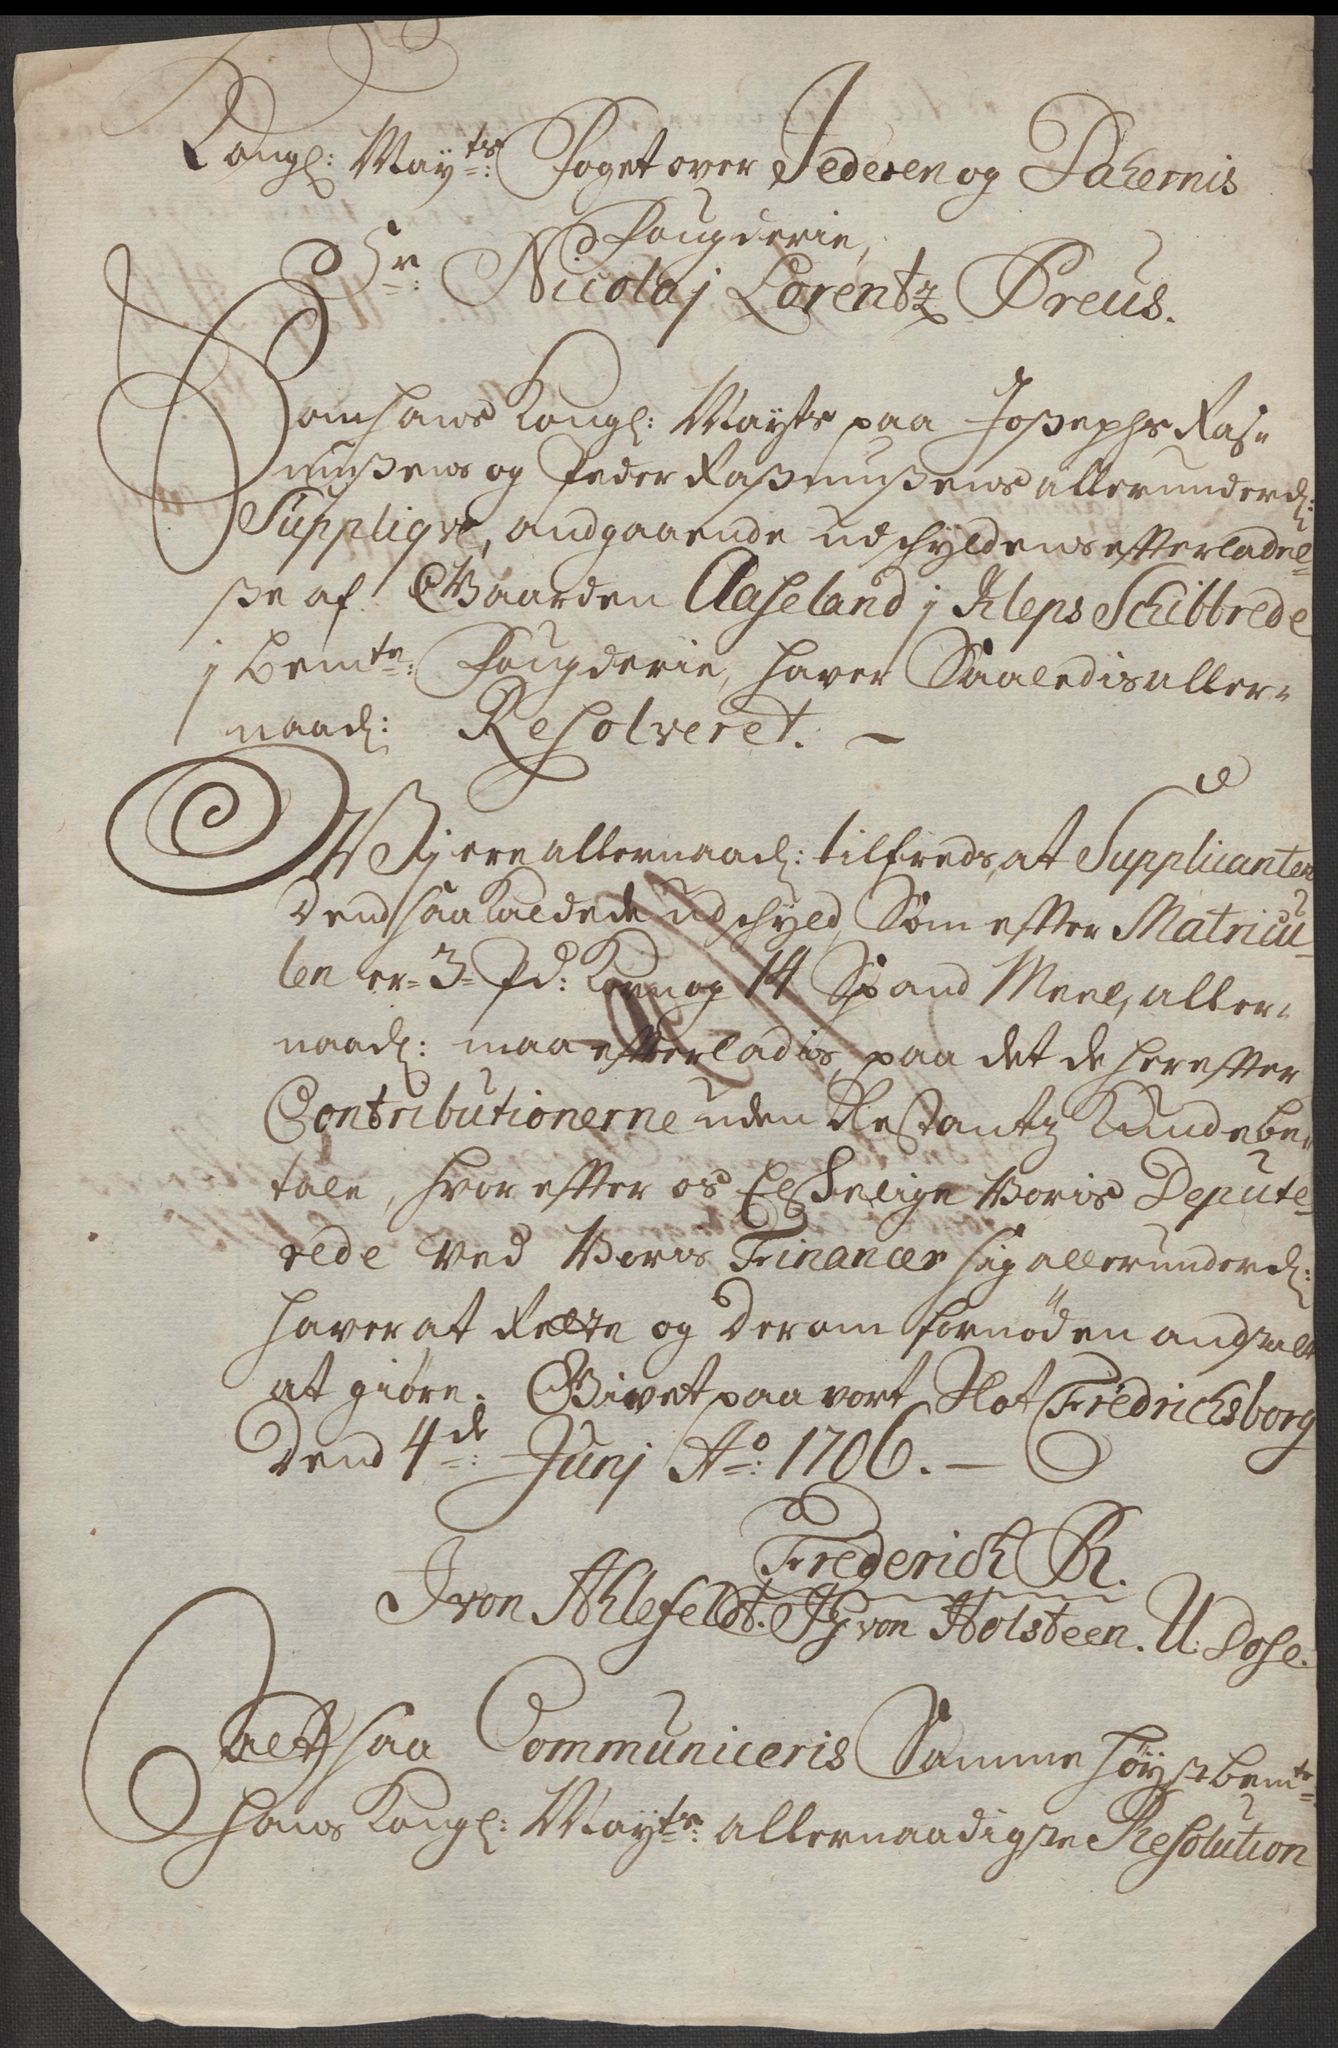 Kongl: Mayts: Foget over Jederen og Dahernis
Fougderie,
Sr: Nicolaj Lorentz Preus.
Som hans Kongl: Mayts paa Joseph Ras-
mußens og Peder Raßmußens allerunderd:
Suppliqve, andgaaende udschyldens efterladel-
ße af Gaarden Aaseland j Kleps Schibbrede
j bemte: Fougderie, haver Saaledis aller-
naad: Resolveret. —
Wj ere allernaad: tilfreds, at Supplicanten
dend saa Kaldede udschyld, Som efter Matricu-
len er 3 Pd: Korn og 14 Spand Meel, aller-
naad: maa efterladis, paa det de herefter
Contributionerne uden Restantz Kunde be-
tale, hvorefter os Elskelige Voris Depute-
rede ved Voris Financer sig allerunderd:
haver at Rette og derom fornöden andstalt
at giöre. Givet paa vort Slot Fredrichsborg
Dend 4de: Junj Ao: 1706. —
Frederich R.
J von Ahlefeldt. von Holsteen. U: Dose.
Altsaa Communiceris Samme høystbemte:
hans Kongl: Mayts: allernaadigste Resolution